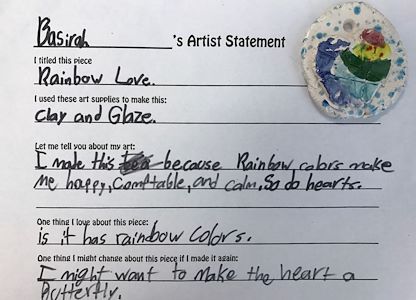 Basirah 's Artist Statement
I titled this piece
Rainbow Love.
I used these art supplies to make this:
Clay and Glaze.
Let me tell you about my art:
I made this because Rainbow colors make
me happy, Comftable, and calm, So do hearts.
One thing I love about this piece:
is it has rainbow colors.
One thing I might change about this piece if I made it again:
I might want to make the heart a
Butterfly.